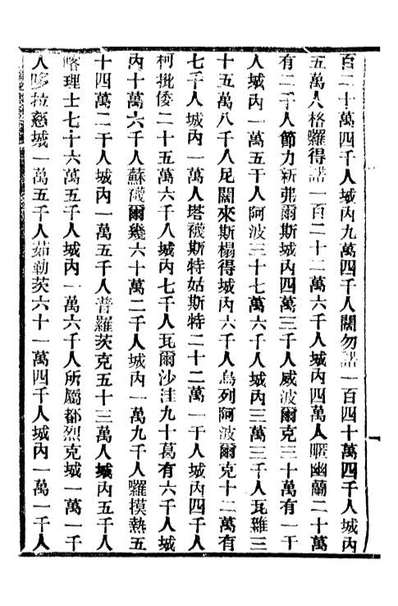 百二十萬四千人城內九萬四千人關勿諾一百四十萬四千人城內
五萬人格羅得諾一百二十二萬六千人城內四萬人噁幽蘭二十萬
有二千人節力新弗爾斯城內四萬三千人威波爾克三十萬有一千
人城內一萬五千人阿波三十七萬六千人城內三萬三千人瓦雖三
十五萬八千人足闊來斯榻得城內六千人烏列阿波爾克十二萬有
七千人城內一萬人塔襪斯特姑斯特二十二萬一千人城內四千人
柯批倭二十五萬六千八人城內七千人瓦爾沙洼九十葛有六千人城
內十萬六千人蘇襪爾幾六十萬二千人城內一萬九千人囉摸熱五
十四萬二千人城內一萬五千人普羅茨克五十三萬人城內五千人
喀理士七十六萬五千人城內一萬六千人所屬都烈克城一萬一千
人哆拉慈城一萬五千人茹勒茨六十一萬四千人城內一萬一千人